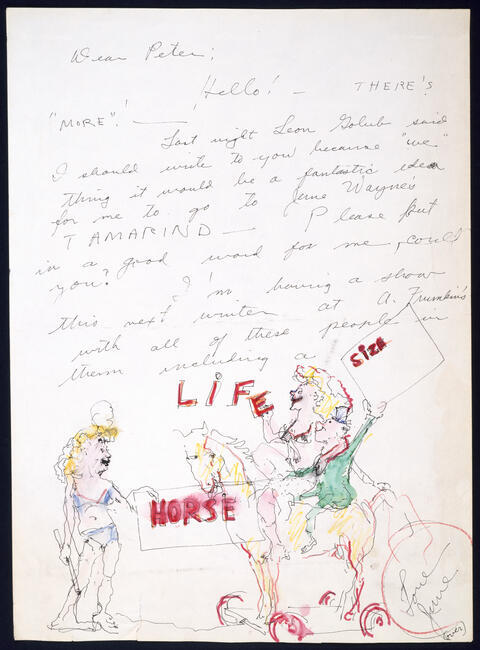 Dear Peter;
Hello! — THERE'S
"MORE"! —
Last night Leon Golub said
I should write to you because "we"
thing it would be a fantastic idea
for me to go to June Wayne's
TAMARIND — Please put
in a good word for me, could
you? I'm having a show
this next winter at A. Frumkin's
with all of these people in
them including a
LiFE
SiZE
HORSE
Love
June
(over)